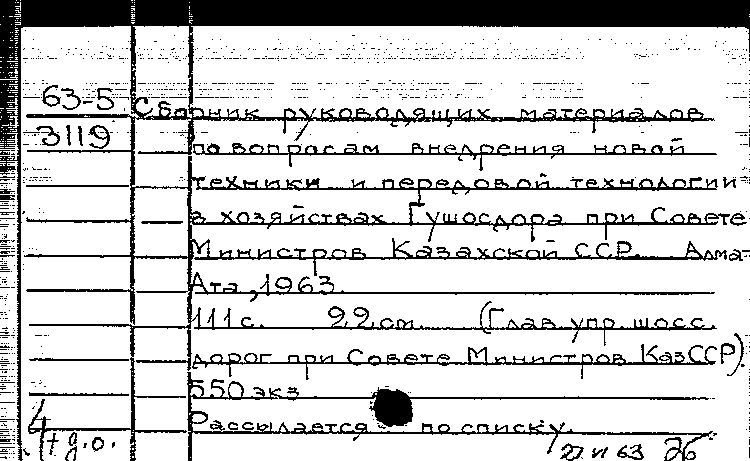 63-5 Сборник руководящих материалов
3119 по вопросам внедрения новой
техники и передовой технологии
в хозяйствах Гушосдора при Совете
Министров Казахской ССР. Алма-
Ата, 1963.
111 с. 22 см. (Глав. упр. шосс.
дорог при Совете Министров КазССР).
550 экз.
Рассылается по списку.
27 VI 63